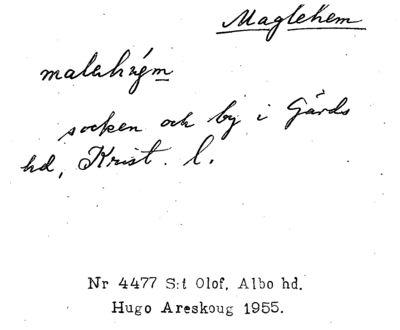 Maglehem
malahу́gm
socken och by i Gärds
hd, Krist. l.
Nr 4477 S:t Olof, Albo hd.
Hugo Areskoug 1955.